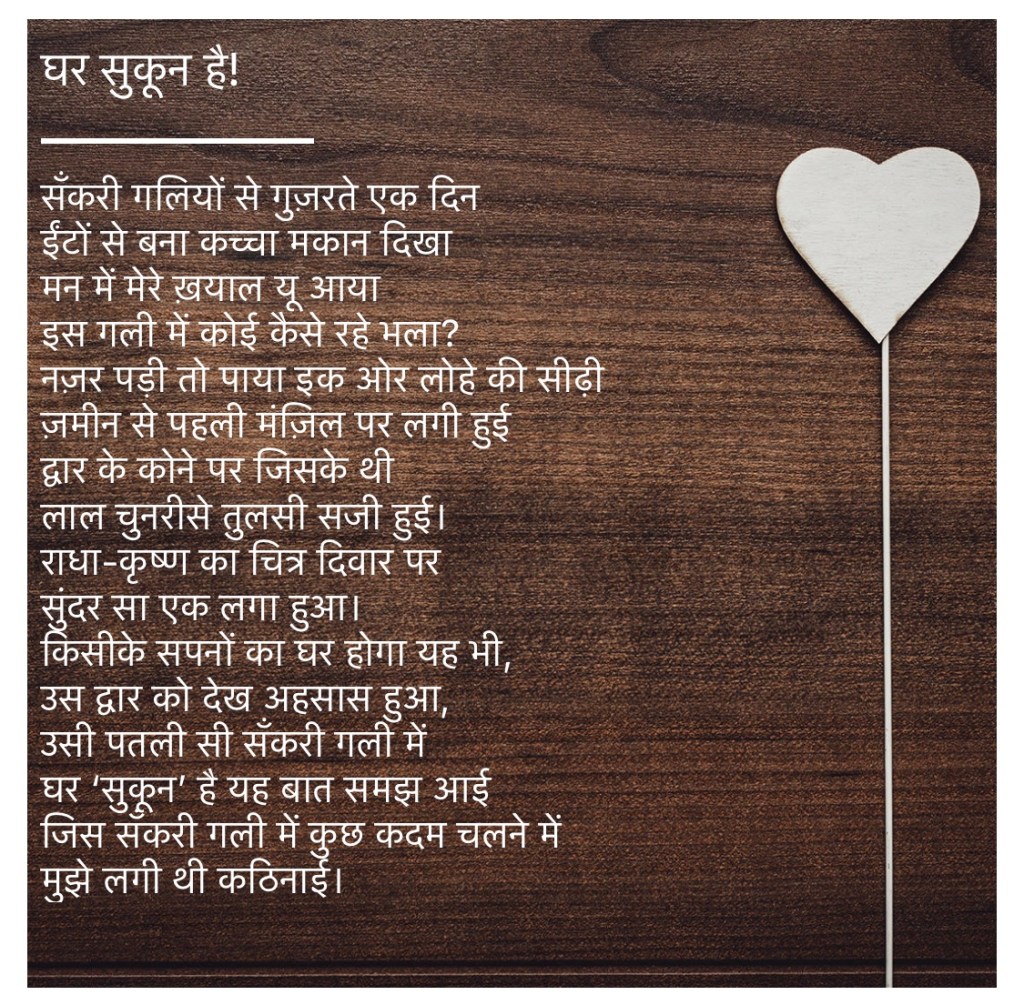 घर सुकून है!
सँकरी गलियों से गुज़रते एक दिन
ईंटों से बना कच्चा मकान दिखा
मन में मेरे ख़याल यू आया
इस गली में कोई कैसे रहे भला?
नज़र पड़ी तो पाया इक ओर लोहे की सीढ़ी
ज़मीन से पहली मंज़िल पर लगी हुई
द्वार के कोने पर जिसके थी
लाल चुनरीसे तुलसी सजी हुई।
राधा-कृष्ण का चित्र दिवार पर
सुंदर सा एक लगा हुआ।
किसीके सपनों का घर होगा यह भी,
उस द्वार को देख अहसास हुआ,
उसी पतली सी सँकरी गली में
घर ‘सुकून’ है यह बात समझ आई
जिस सँकरी गली में कुछ कदम चलने में
मुझे लगी थी कठिनाई।